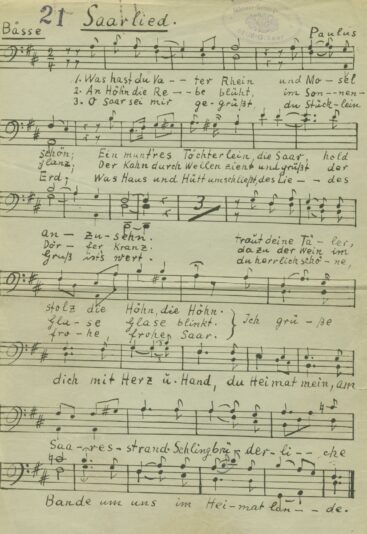 21 Saarlied.
Bässe
Paulus
1. Was hast du Va -- ter Rhein und Mo - sel
2. An Höhn die Re -- be blüht, im Son - nen-
3. O Saar sei mir ge - grüßt du Stück - lein
schön; Ein muntres Töchterlein, die Saar, hold
glanz; Der Kahn durch Wellen zieht und grüßt der
Erd; Was Haus und Hütt umschließt, des Lie -- des
3
an - zu - sehn. Traut deine Tä - ler,
Dör - fer Kranz. da zu der Wein im
Gruß ins wert. du herrlich schö - ne,
stolz die Höhn, die Höhn.
Gla - se Glase blinkt. } Ich grü - ße
fro - he frohen Saar.
dich mit Herz u. Hand, du Heimat mein, am
Saa - res - strand. Schling brü - der - li -- che
Bande um uns im Hei - mat lan -- de.